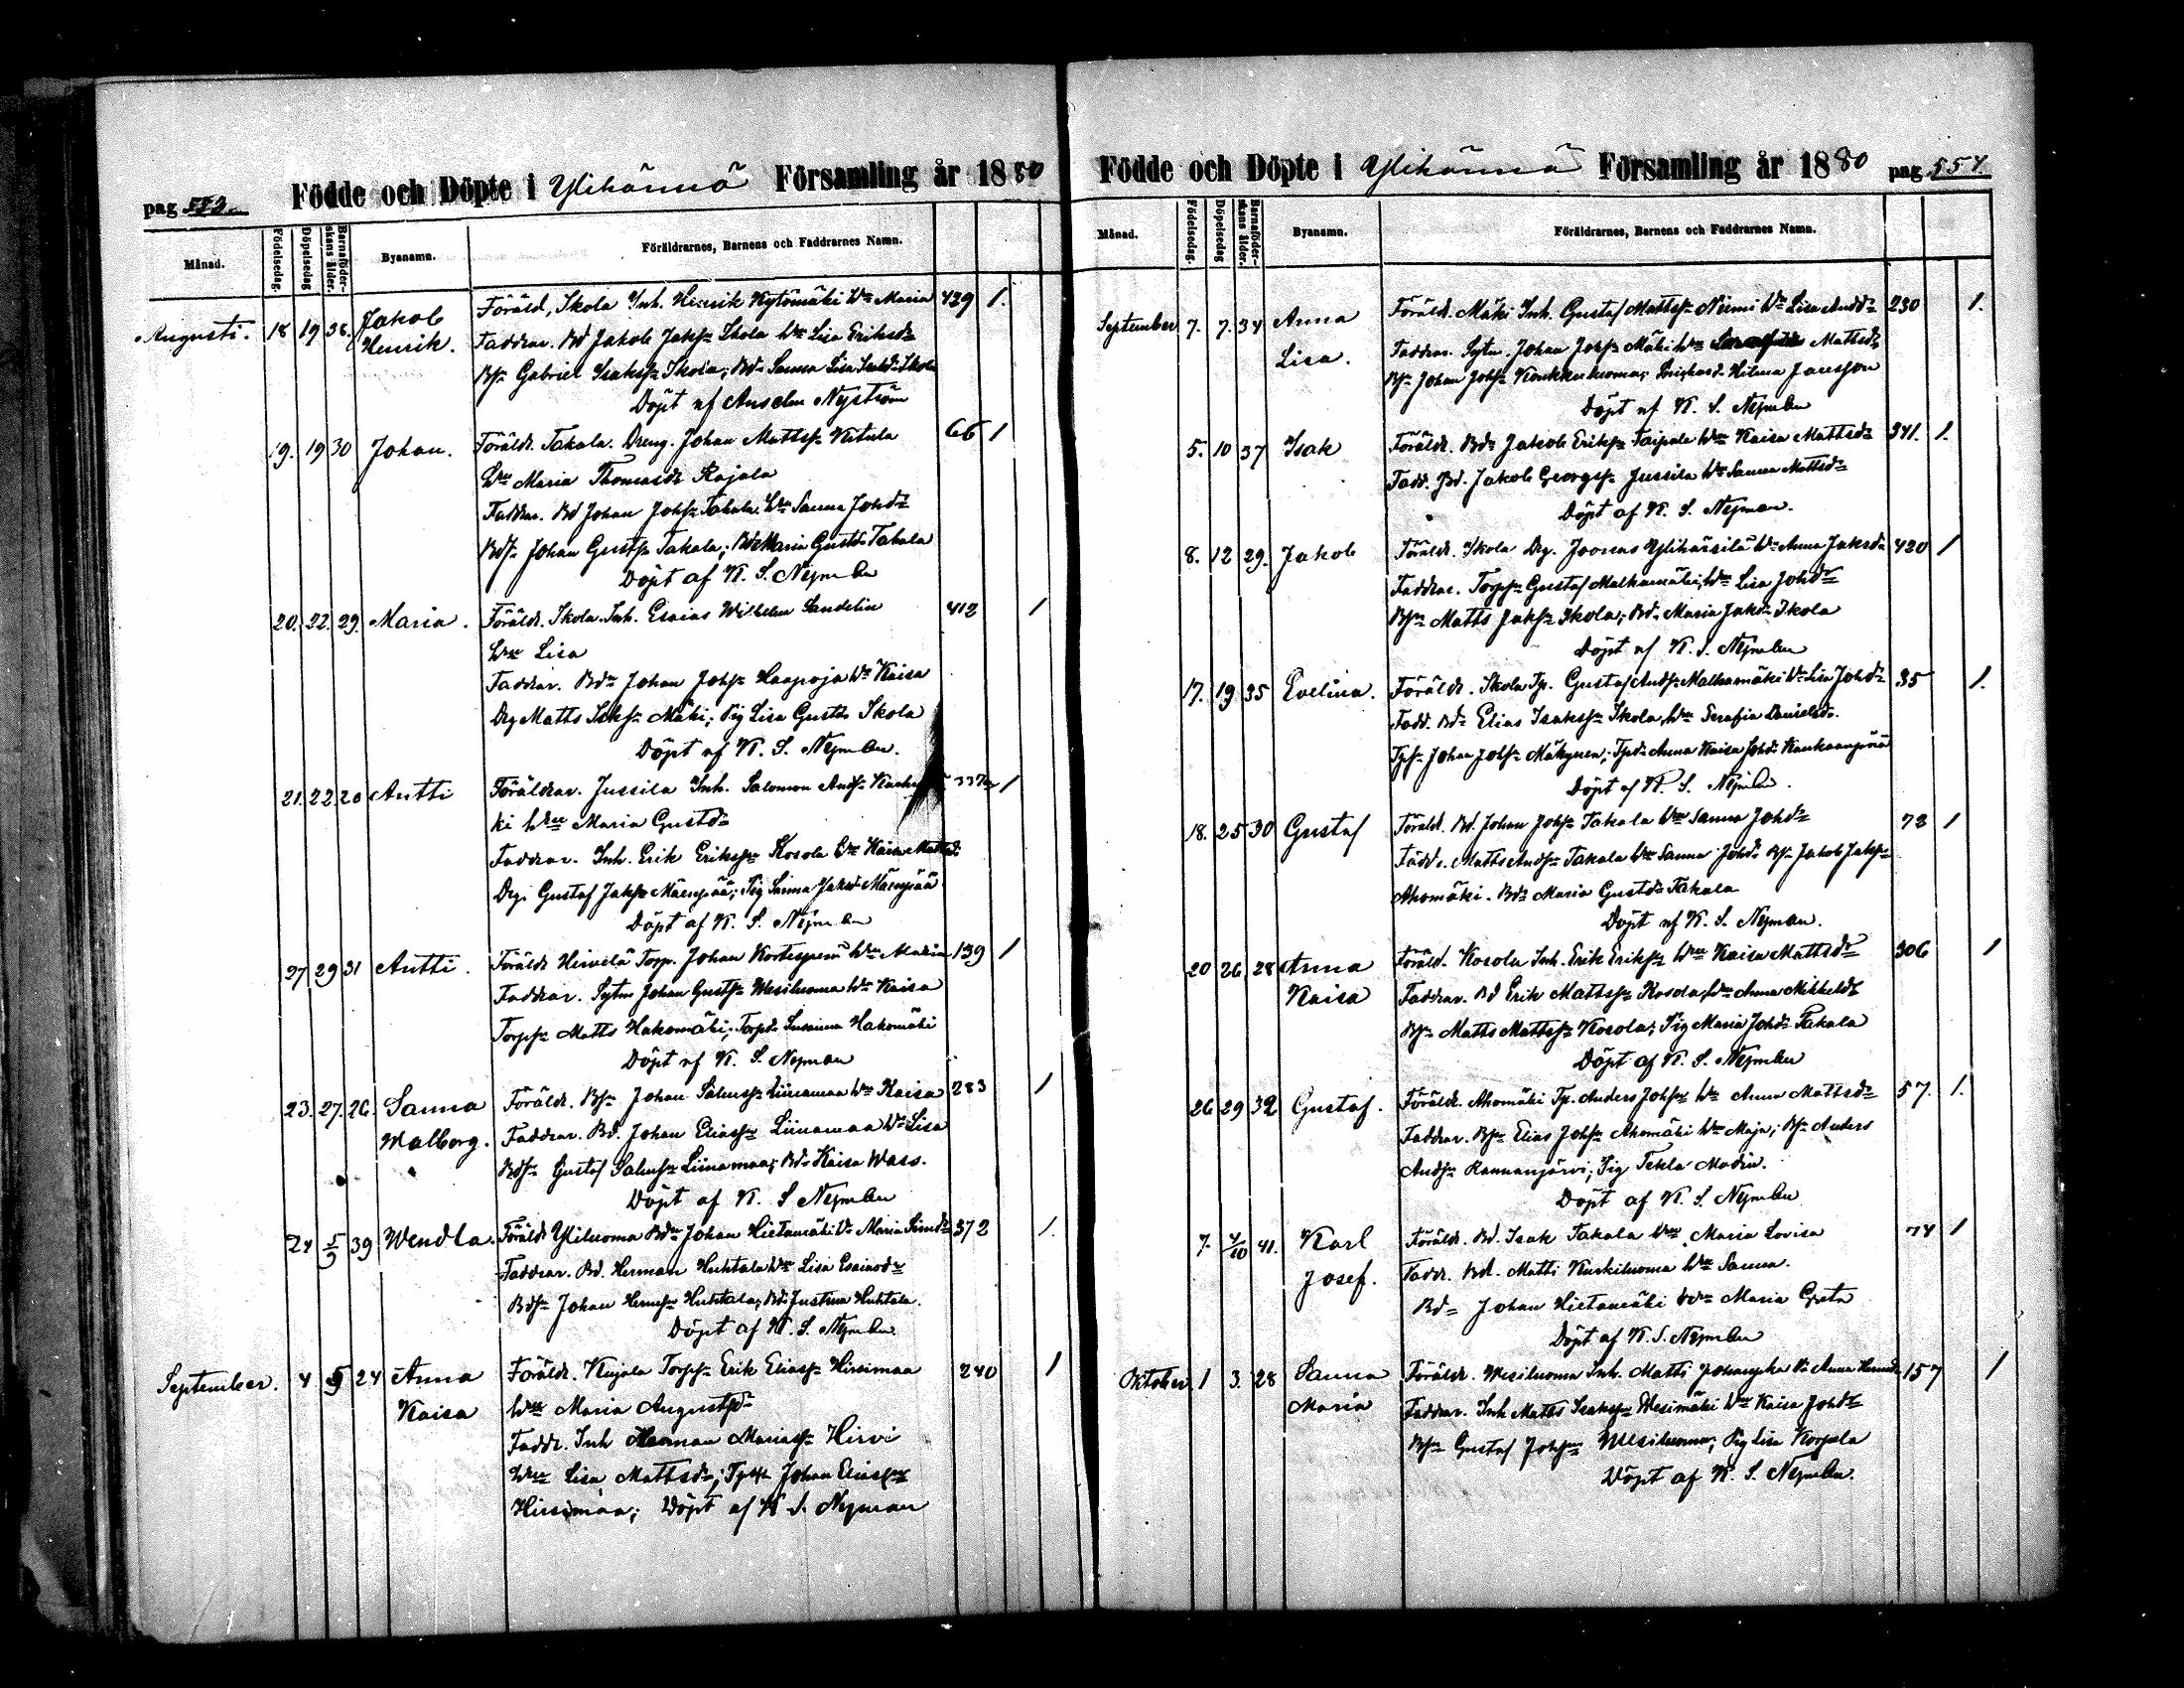 pag 553.
Födde och Döpte i Ylihärmä Församling år 1880
Månad.
Födelsedag.
Döpelsedag
Barnaföderskans ålder.
Byanamn.
Föräldrarnes, Barnens och Faddrarnes Namn.
Augusti. 18 19 38. Jakob Föräld, Ikola Inh. Henrik Kytömäki Hu Maria 429 1.
Henrik. Faddrar. Bd Jakob Jakss Ikola Hu Lisa Eriksdr
Bs Gabriel Isakss Ikola; Bdr Sanna Lisa Ikola
Döpt af Anselm Nyström
19. 19 30 Johan. Föräldr. Takala. Dreng. Johan Mattss Ketula 66 1
Hu Maria Thomasdr Rajala
Faddrar. Bd Johan Johss Takala Hu Sanna Johdr
Bds Johan Gustss Takala; Bdr Maria Gustdr Takala
Döpt af K. S. Nyman
20. 22. 29. Maria. Föräldr. Ikola. Inh. Esaias Wilhelm Sandelin 412 1
Hu Lisa
Faddrar. Bdn Johan Johss Haapoja Hu Kaisa
Drg Matts Mäki; Pig Lisa Gustdr Ikola
Döpt af K. S. Nyman.
21. 22. 20 Antti Föräldrar. Jussila Inh. Salomon Andss 337 1
ki Hu Maria Gustdr
Faddrar. Inh. Erik Erikss Kosola Hu Kaisa Mattsdr
Drg. Gustaf Jakss Mäenpää; Pig Sanna Jaksdr Mäenpää
Döpt af K. S. Nyman
27 29 31 Antti. Föräldr Hirvelä Torp. Johan Kortesperä Hu Maria 139 1
Faddrar. Sytn Johan Gustss Wesiluoma Hu Kaisa
Torps Matts Hakomäki; Torpd Susanna Hakomäki
Döpt af K. S. Nyman
23. 27. 26. Sanna Föräldr. Bs Johan Salmss Liinamaa Hu Kaisa 283 1
Walborg. Faddrar. Bd. Johan Eliass Liinamaa Hu Lisa
Bds Gustaf Salmss Liinamaa; Bdr Kaisa Wass.
Döpt af K. S Nyman
24 5/9 39 Wendla. Föräldr Yliluoma Bdn Johan Hietamäki Hu Maria Simdr 372 1.
Faddrar. Bd. Herman Huhtala Hu Lisa Esaiasdr
Bds Johan Hermss Huhtala; Bdr Justina Huhtala.
Döpt af K. S. Nyman
September. 4 5 24 Anna Föräldr. Kujala Torps Erik Eliass Hirsimaa 240 1
Kaisa Hu Maria Augustsdr
Faddr. Inh Herman Mariass Hirvi
Hu Lisa Mattsdr; Tps Johan Eliass
Hirsimaa; Döpt af K S. Nyman
Födde och Döpte i Ylihärmä Församling år 1880 pag 554.
Månad.
Födelsedag.
Döpelsedag
Barnaföderskans ålder.
Byanamn.
Föräldrarnes, Barnens och Faddrarnes Namn.
September 7. 7. 34 Anna Föräldr. Mäki Inh. Gustaf Mattss Niemi Hu Lisa Andd 230 1.
Lisa. Faddrar. Sytn. Johan Johss Mäki Hu Mattsdr
Bs Johan Johss Konkkuluoma; Hilma Jansson
Döpt af K. S. Nyman
5. 10 37 Isak Föräldr. Bdn Jakob Erikss Taipale Hu Kaisa Mattsdr 341. 1.
Fadd. Bd. Jakob Georgss Jussila Hu Sanna Mattsdr
Döpt af K. S. Nyman.
8. 12 29. Jakob Föräldr. Ikola Drg. Joonas Ylihärsilä Hu Anna Jaksdr 420 1
Faddrar. Torps Gustaf Malkamäki, Hu Lisa Johdr
Bs Matts Jakss Ikola; Bdr Maria Jakdr Ikola
Döpt af K. S. Nyman
17. 19 35 Evelina. Föräldr. Ikola Tp. Gustaf Andss Malkamäki Hu Lisa Johdr 35 1.
Fadd. Bdn Elias Isakss Ikola, Hu Serafia Danielsdr.
Tps Johan Johss Mäkynen; Tpdr Anna Kaisa Johdr Kankaanpää
Döpt af K. S. Nyman.
18. 25 30 Gustaf Föräld. Bd. Johan Johss Takala Hu Sanna Johdr 72 1
Faddr. Matts Andss Takala Hu Sanna Johdr Bs Jakob Jakss
Ahomäki. Bdr Maria Gustdr Takala
Döpt af K. S. Nyman.
20 26 28 Anna Föräld. Kosola Inh. Erik Erikss Hu Kaisa Mattsdr 306 1
Kaisa Faddrar. Bd Erik Mattss Kosola, Hu Anna Mikkeldr
Bs Matts Mattss Kosola; Pig Maria Johdr Takala
Döpt af K. S. Nyman
26 29 32 Gustaf. Föräldr. Ahomäki Tp. Anders Johss Hu Anna Mattsdr 57. 1.
Faddrar. Bs Elias Johss Ahomäki Hu Maja; Bs Anders
Andss Rannanjärvi; Pig Tekla Modin.
Döpt af K. S. Nyman
7. 4/10 41. Karl Föräldr. Bd. Isak Takala Hu Maria Lovisa 74 1
Josef. Faddr. Bd. Matti Kuskiluoma Hu Sanna.
Bdn Johan Hietamäki Hu Maria Greta
Döpt af K. S. Nyman
Oktober 1 3. 28 Sanna Föräldr. Wesiluoma Inh. Matti Hu Anna Hermdr 157 1
Maria Faddrar. Inh Matts Isakss Wesimäki Hu Kaisa Johdr
Bs Gustaf Johss Wesiluoma; Pig Lisa Korpela
Döpt af K. S. Nyman.